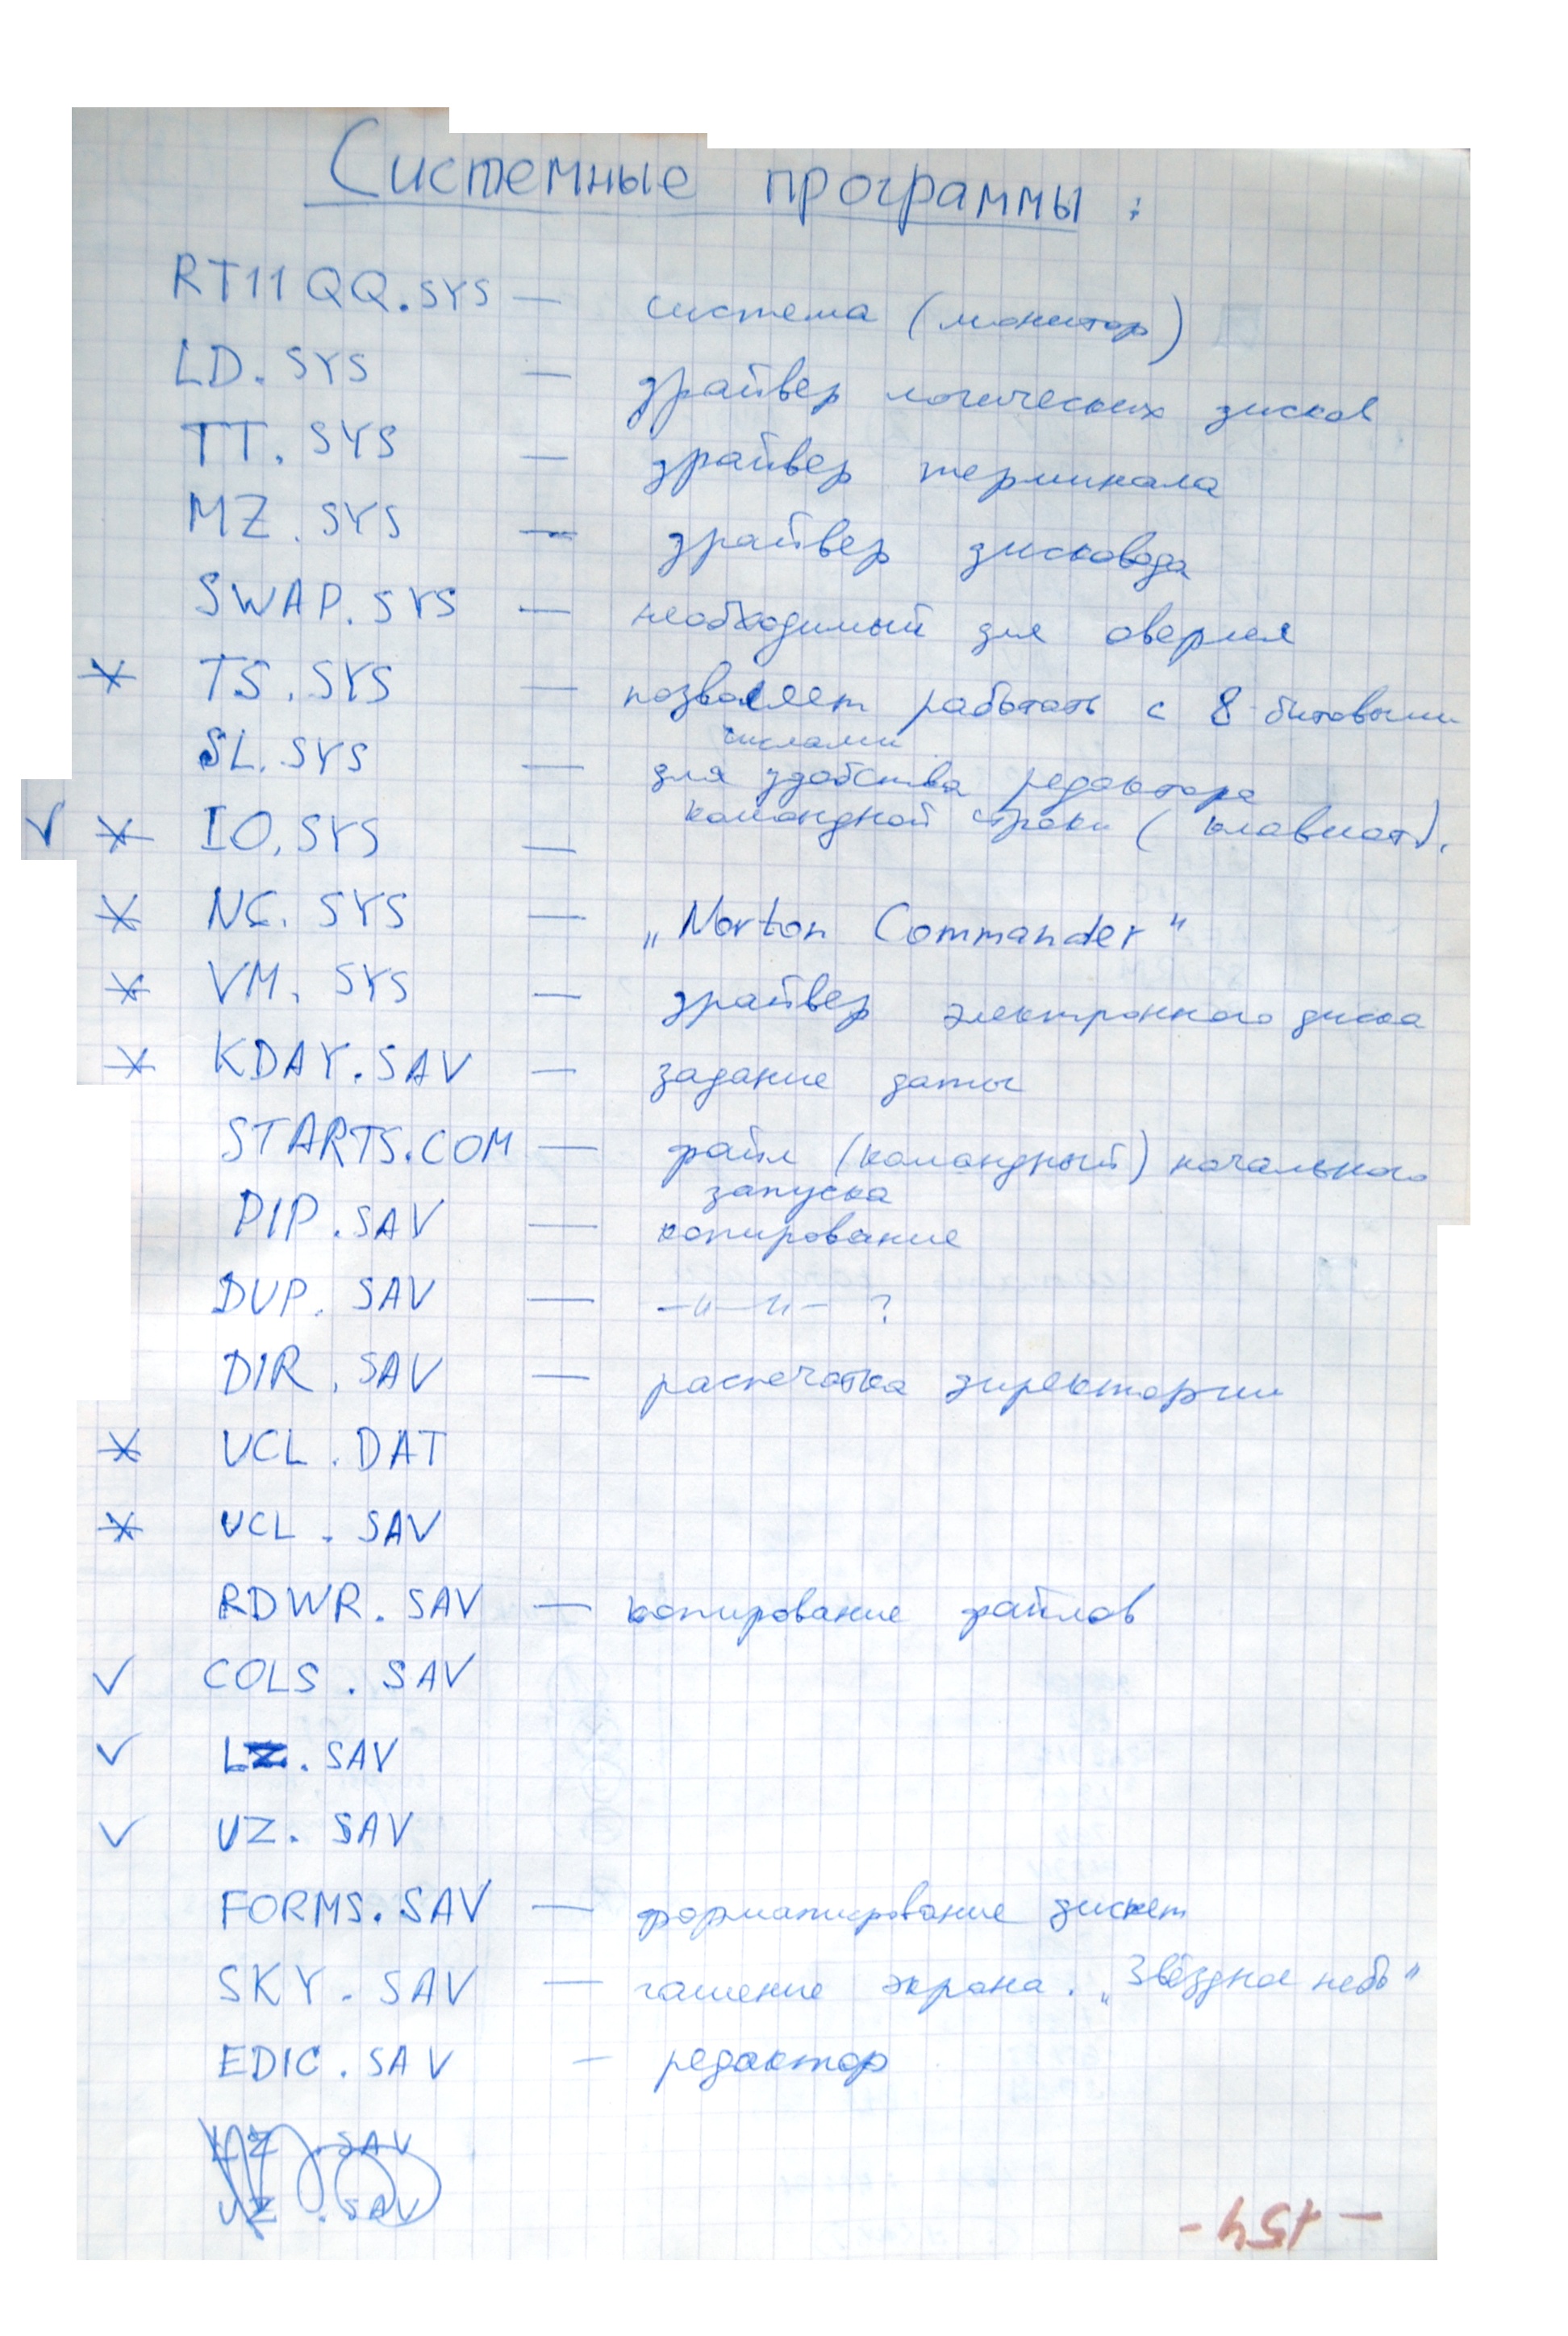 Системные программы :
RT11QQ.SYS — система (монитор)
LD.SYS — драйвер логических дисков
TT.SYS — драйвер терминала
MZ.SYS — драйвер дисковода
SWAP.SYS — необходимый для оверлея
* TS.SYS — позволяет работать с 8-битовыми
числами
SL.SYS — для удобства редактора
командной строки (клавиат).
✓ * IO.SYS —
* NC.SYS — „Norton Commander“
* VM.SYS — драйвер электронного диска
* KDAY.SAV — задание даты
STARTS.COM — файл (командный) начального
запуска
PIP.SAV — копирование
DUP.SAV — —"—"— ?
DIR.SAV — распечатка директории
* UCL.DAT
* UCL.SAV
RDWR.SAV — копирование файлов
✓ COLS.SAV
✓ LZ.SAV
✓ UZ.SAV
FORMS.SAV — форматирование дискет
SKY.SAV — гашение экрана. „Звёздное небо“
EDIC.SAV — редактор
LZ.SAV
UZ.SAV
- 154 -